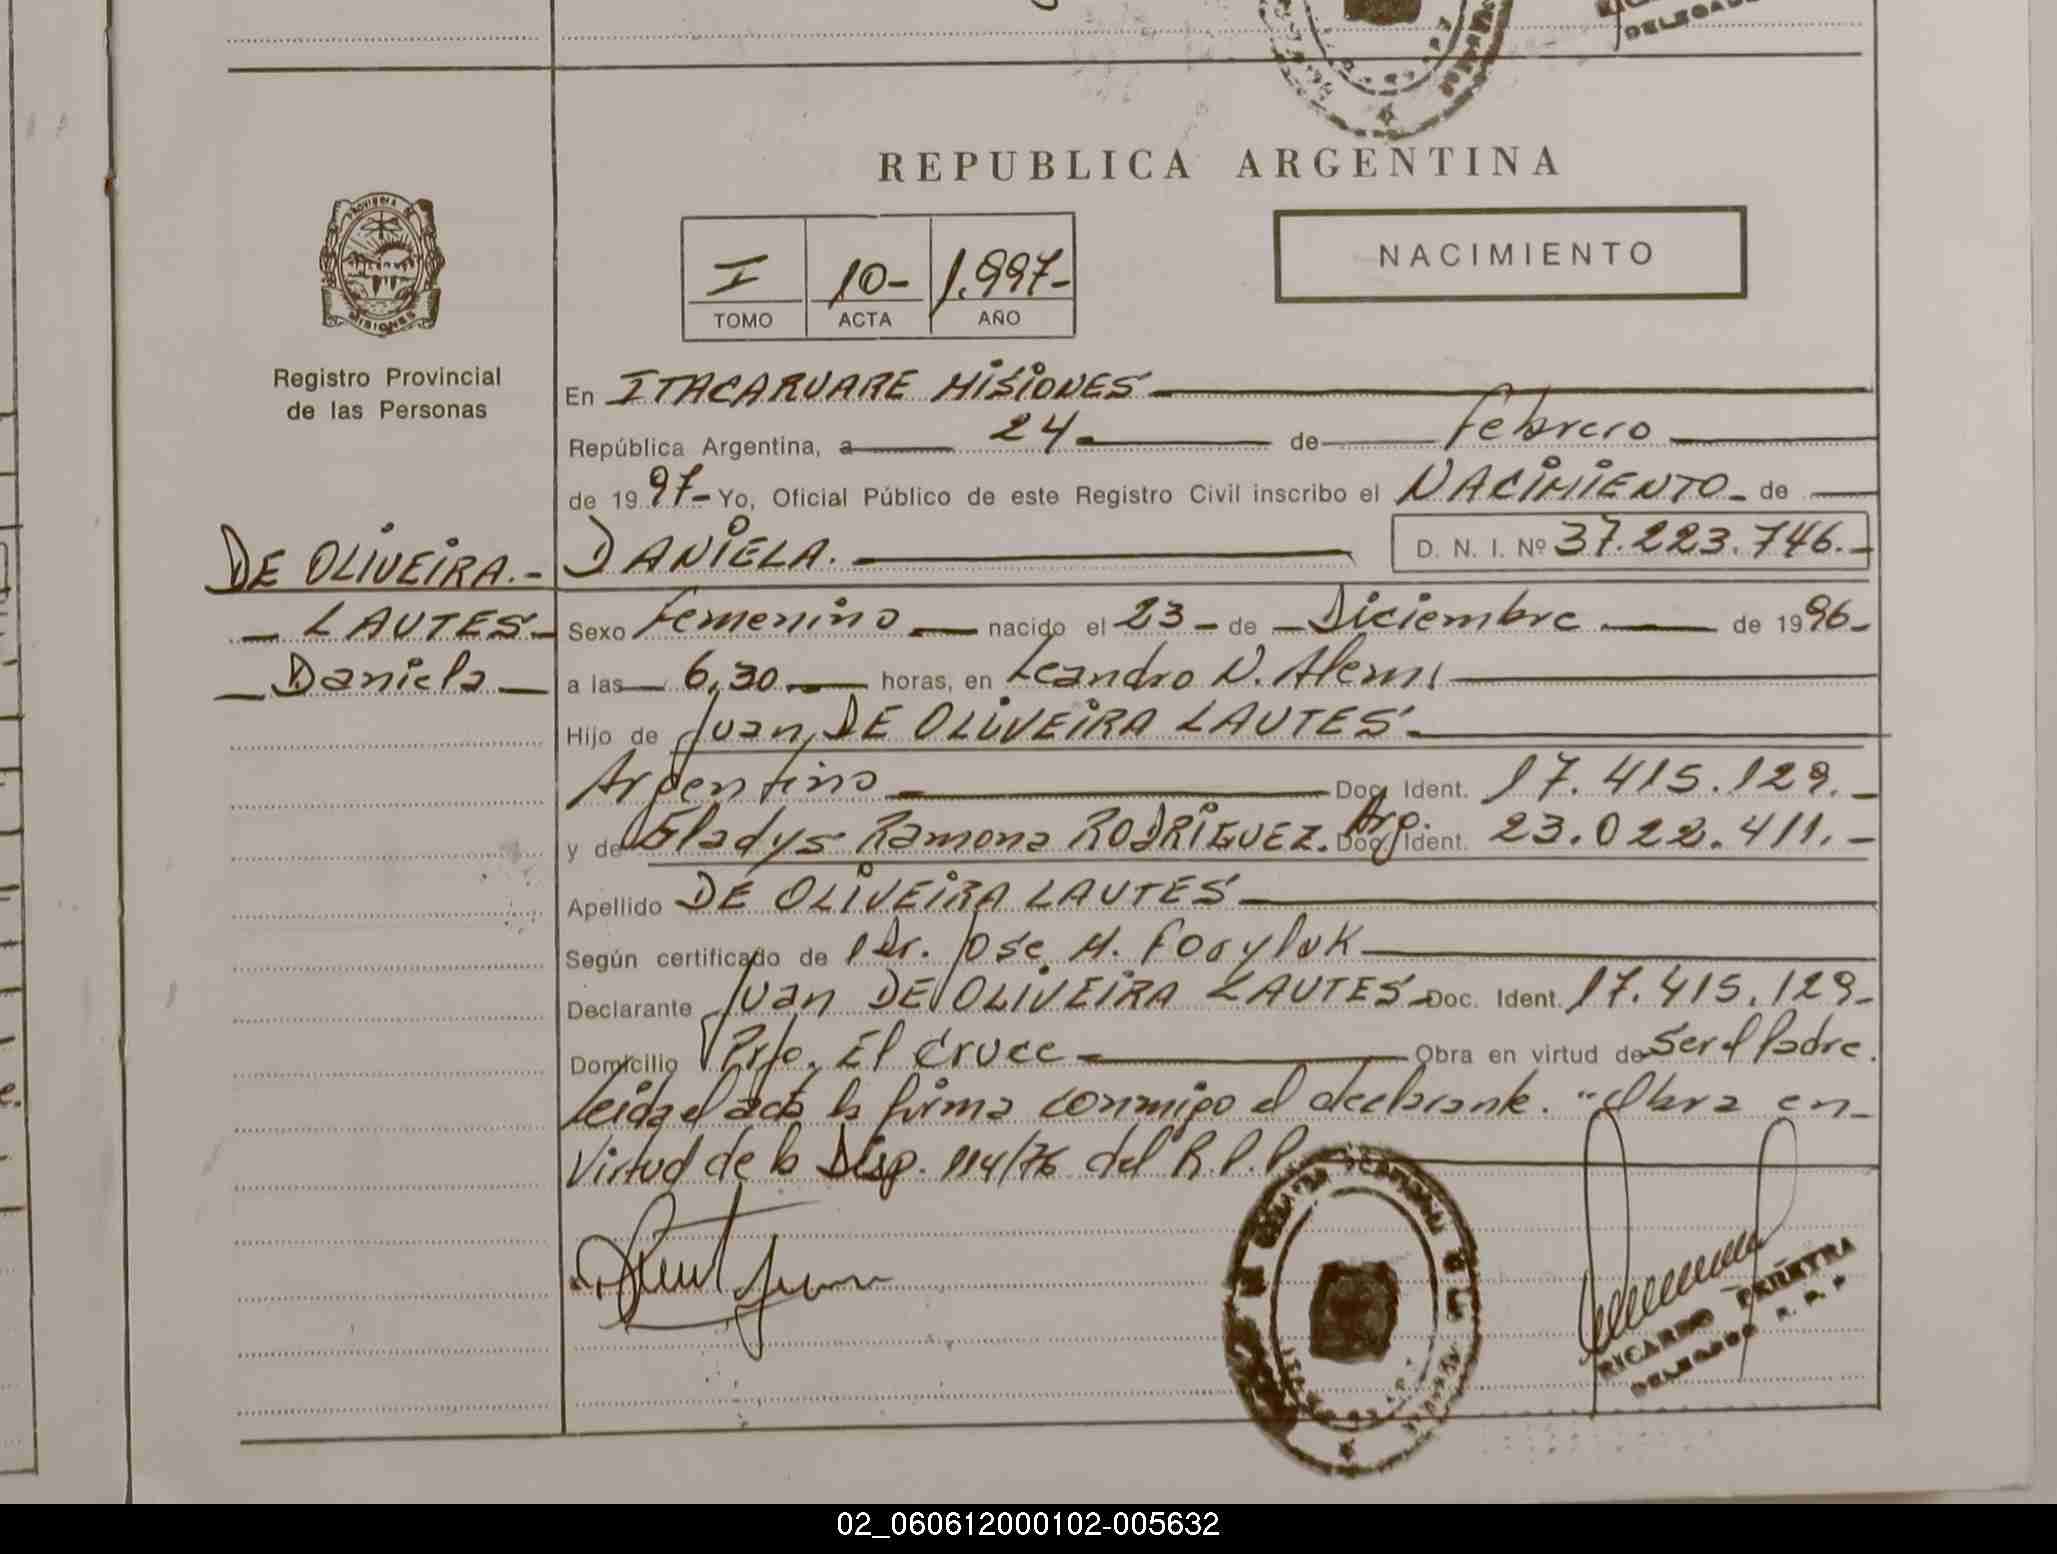 REPUBLICA ARGENTINA
NACIMIENTO
I 10- 1.997-
TOMO ACTA AÑO
PROVINCIA DE
MISIONES
Registro Provincial
de las Personas
En ITACARUARE MISIONES
República Argentina, a 24 de Febrero
de 1997- Yo, Oficial Público de este Registro Civil inscribo el NACIMIENTO de
DE OLIVEIRA.- DANIELA. D. N. I. Nº 37.223.746.-
LAUTES- Sexo Femenino nacido el 23 de Diciembre de 1996-
Daniela a las 6,30 horas, en Leandro N. Alem
Hijo de Juan DE OLIVEIRA LAUTES
Argentino Doc. Ident. 17.415.129.-
y de Gladys Ramona RODRIGUEZ. Arg. Doc. Ident. 23.022.411.-
Apellido DE OLIVEIRA LAUTES
Según certificado de Dr. Jose M.
Declarante Juan DE OLIVEIRA LAUTES Doc. Ident. 17.415.129-
Domicilio Prje. El Cruce Obra en virtud de Ser el Padre.
Leida el acta la firma conmigo el declarante. "Obra en
Virtud de la Disp. 114/76 del R.P.P.
RICARDO PEREYRA
DELEGADO R. P. P
02_060612000102-005632